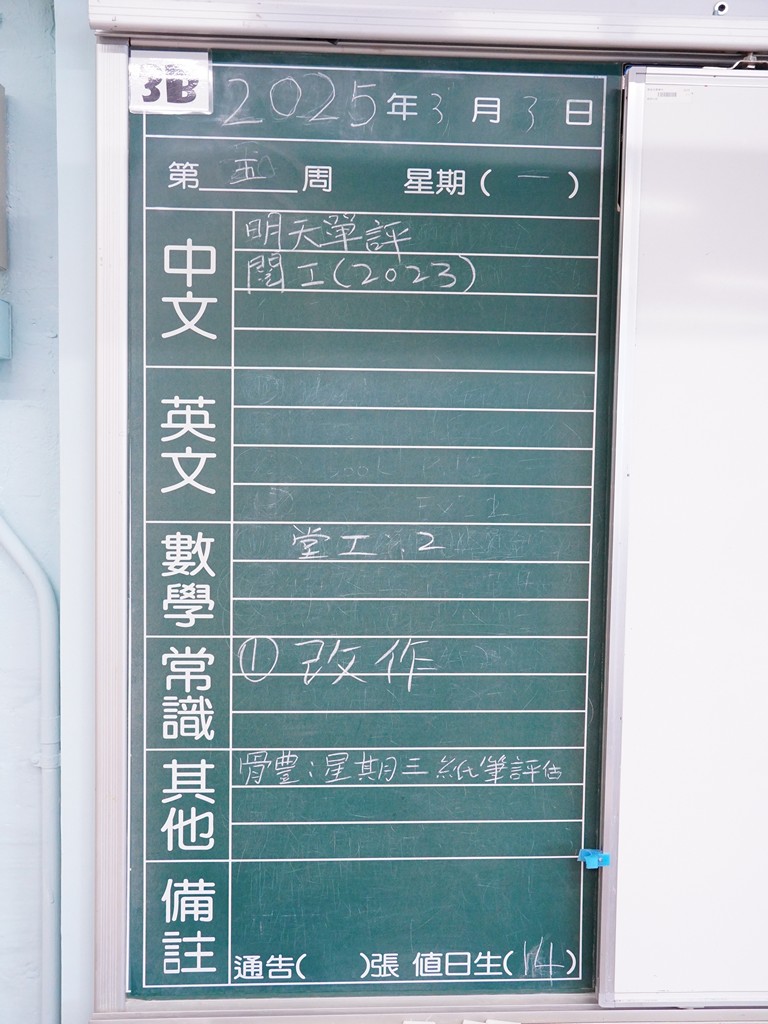 3B
2025年3月3日
第五周 星期(一)
中文
明天單評
閱工(2023)
英文
數學
堂工 2
常識
① 改作
其他
體豊：星期三 紙筆評估
備註
通告( )張 值日生(14)